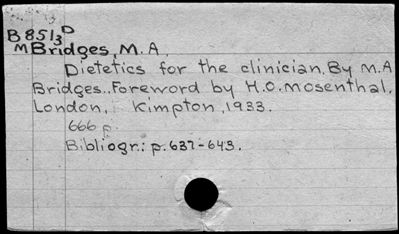 B8513D
MBridges, M. A.
Dietetics for the clinician. By M.A
Bridges.. Foreword by H.O. Mosenthal.
London, Kimpton, 1933.
666 p.
Bibliogr.: p. 637-643.